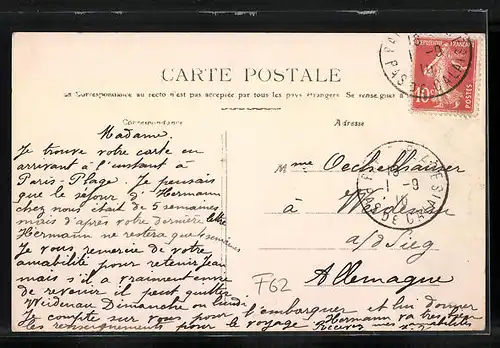 CARTE POSTALE
La Correspondance au recto n'est pas acceptée par tous les pays étrangers. Se renseigner à
Correspondance
Adresse
Madame.
Je trouve votre carte en
arrivant à l'instant à
Paris-Plage. Je pensais
que le séjour d'Hermann
chez nous était de 5 semaines
mais d'après votre dernière lettre
Hermann ne restera que 4 semaines
Je vous remercie de votre
amabilité pour retenir Jean
mais s'il a vraiment envie
de revenir il peut quitter
Weidenau Dimanche ou lundi
Je compte sur vous pour l'embarquer et lui donner
les renseignements pour le voyage Hermann va très bien
Recevez mes amabilités
Mme Oechelhaüser
à Weidenau
a/d Sieg
Allemagne
F62
REPUBLIQUE FRANÇAISE
10c
POSTES
PAS DE CALAIS
1 -9
PAS DE CALAIS
1 -9